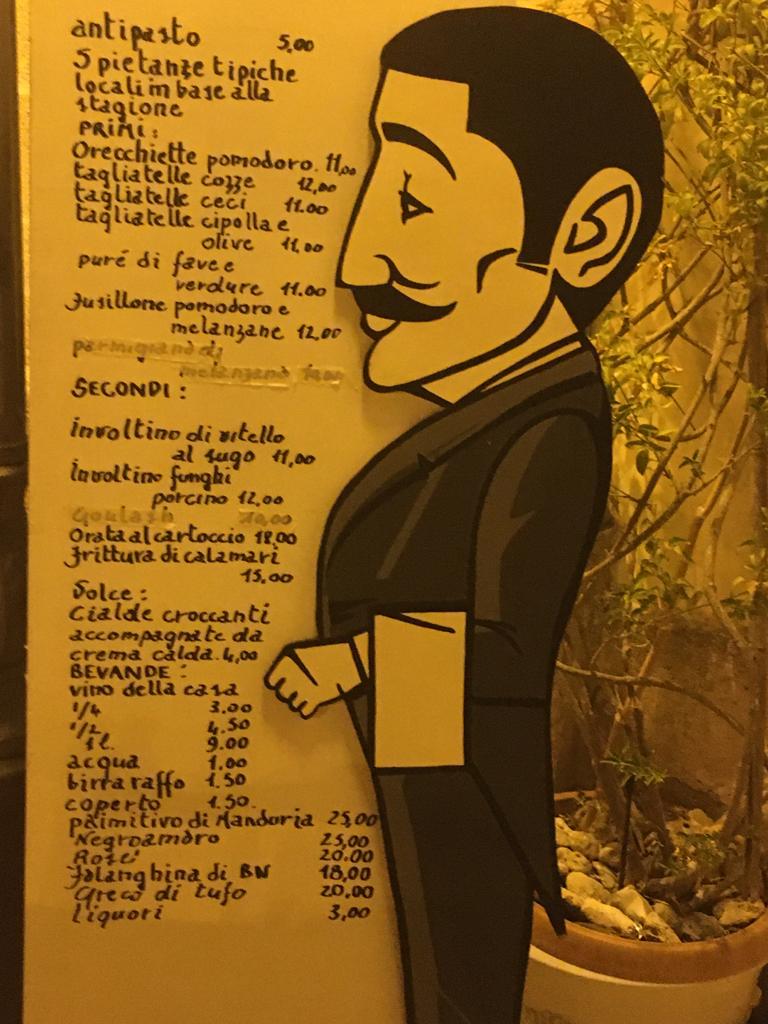 antipasto 5,00
5 pietanze tipiche
locali in base alla
stagione
PRIMI:
Orecchiette pomodoro. 11,00
tagliatelle cozze 12,00
tagliatelle ceci 11.00
tagliatelle cipolla e
olive 11,00
puré di fave e
verdure 11.00
fusillone pomodoro e
melanzane 12,00
parmigiana di
melanzane
SECONDI:
involtino di vitello
al sugo 11,00
involtino funghi
porcino 12,00
Goulash
Orata al cartoccio 18,00
frittura di calamari
15,00
Dolce:
cialde croccanti
accompagnate da
crema calda. 4,00
BEVANDE:
vino della casa
1/4 3.00
1/2 4.50
1 l. 9.00
acqua 1.00
birra raffo 1.50
coperto 1.50.
primitivo di Manduria 25,00
Negroamaro 25,00
Rosé 20.00
Falanghina di BN 18,00
Greco di tufo 20,00
liquori 3,00